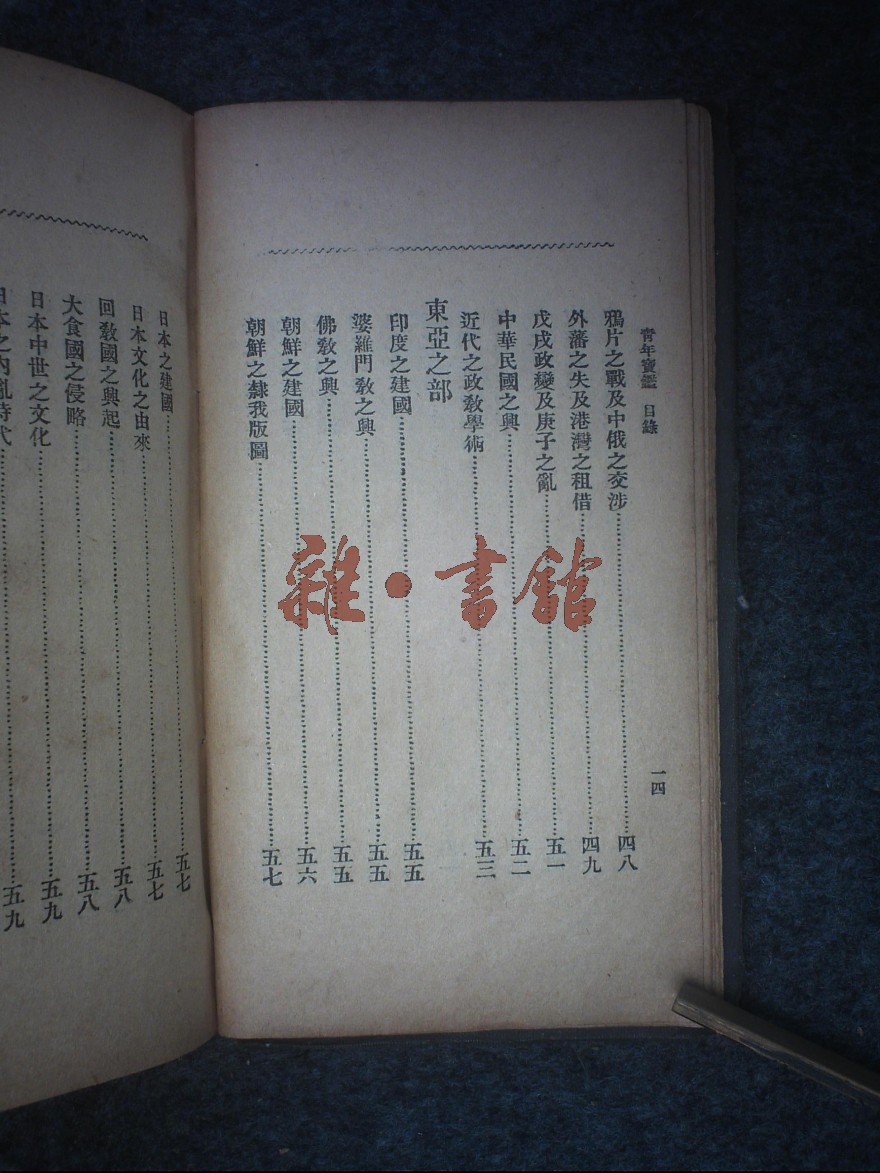 青年寶鑑 目錄 一四
鴉片之戰及中俄之交涉 四八
外藩之失及港灣之租借 四九
戊戌政變及庚子之亂 五一
中華民國之興 五二
近代之政教學術 五三
東亞之部
印度之建國 五五
婆羅門教之興 五五
佛教之興 五五
朝鮮之建國 五六
朝鮮之隸我版圖 五七
日本之建國 五七
日本文化之由來 五七
回教國之興起 五八
大食國之侵略 五八
日本中世之文化 五九
日本之內亂時代 五九
雜·書館